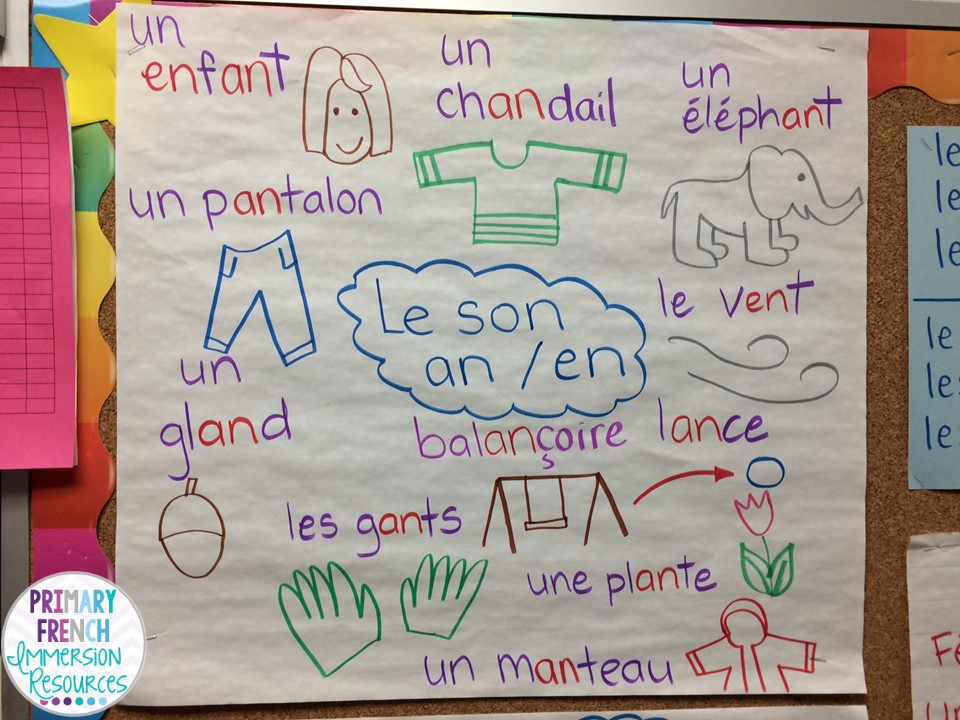 un
enfant
un
chandail
un
éléphant
un pantalon
Le son
an / en
le vent
un
gland
balançoire
lance
les gants
une plante
un manteau
le
le
le
le
les
le
PRIMARY
FRENCH
Immersion
Resources